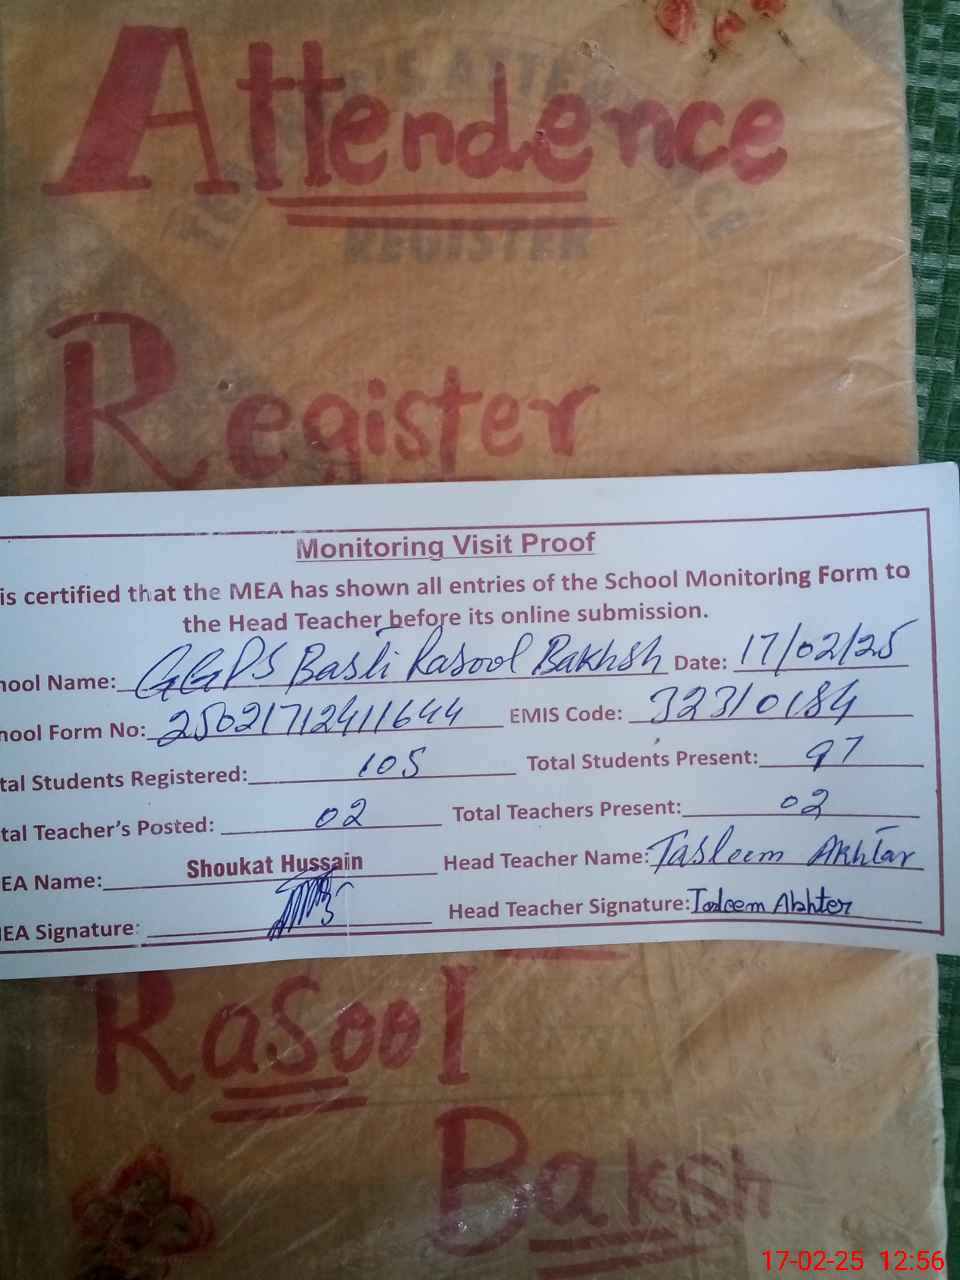 Attendence
REGISTER
Register
Monitoring Visit Proof
is certified that the MEA has shown all entries of the School Monitoring Form to
the Head Teacher before its online submission.
hool Name: GGPS Basti Rasool Bakhsh Date: 17/02/25
hool Form No: 25021712411644 EMIS Code: 32310184
tal Students Registered: 105 Total Students Present: 97
tal Teacher's Posted: 02 Total Teachers Present: 02
EA Name: Shoukat Hussain Head Teacher Name: Tasleem Akhtar
EA Signature: Head Teacher Signature: Tasleem Akhter
Rasool
Baksh
17-02-25 12:56